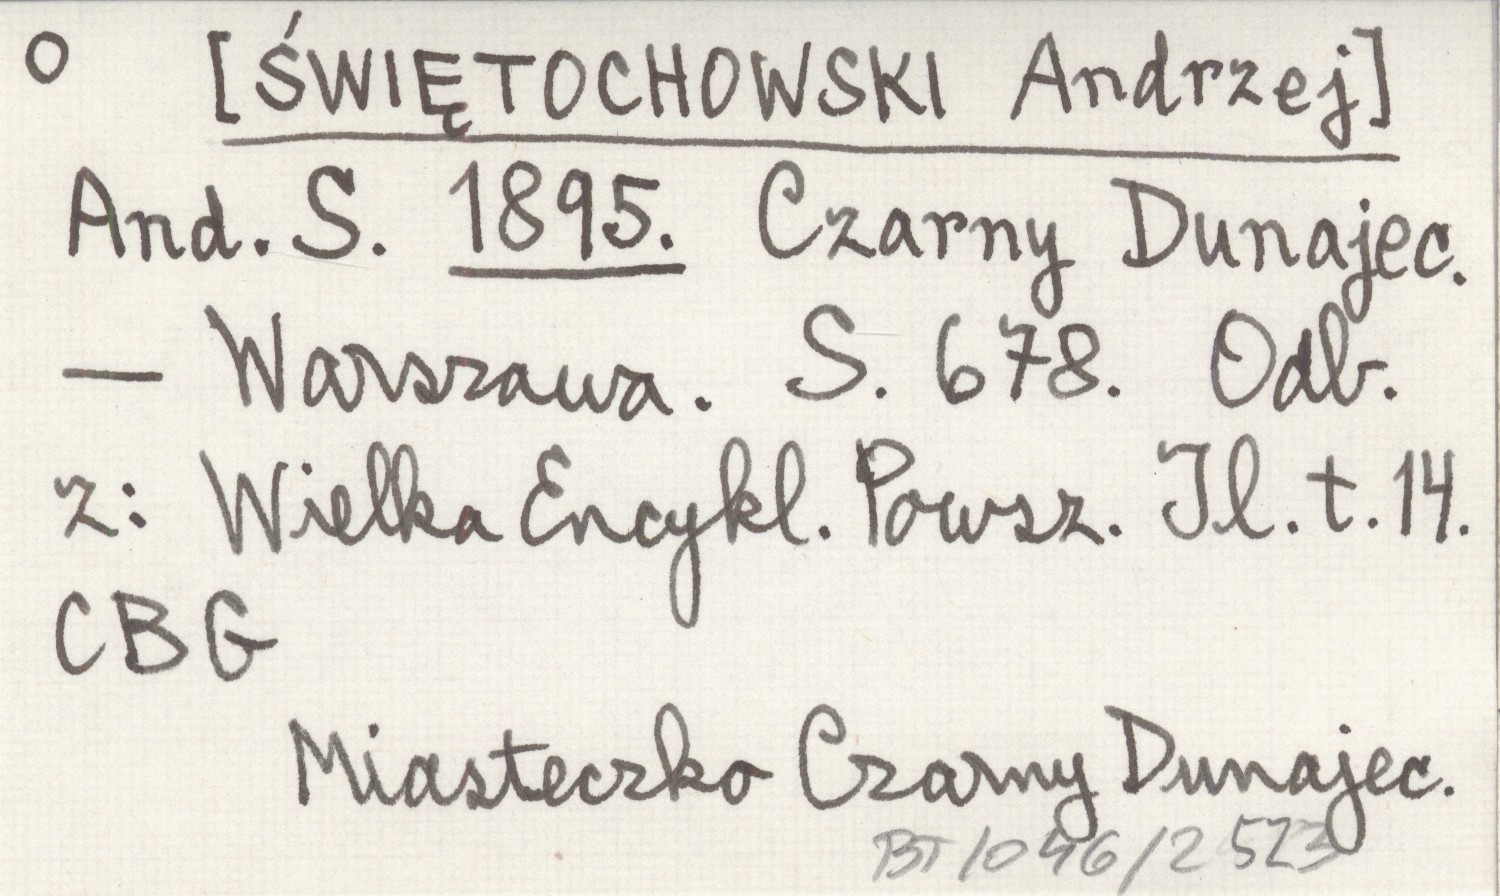 O [ŚWIĘTOCHOWSKI Andrzej]
And. S. 1895. Czarny Dunajec.
— Warszawa. S. 678. Odb.
z: Wielka Encykl. Powsz. Il. t. 14.
CBG
Miasteczko Czarny Dunajec.